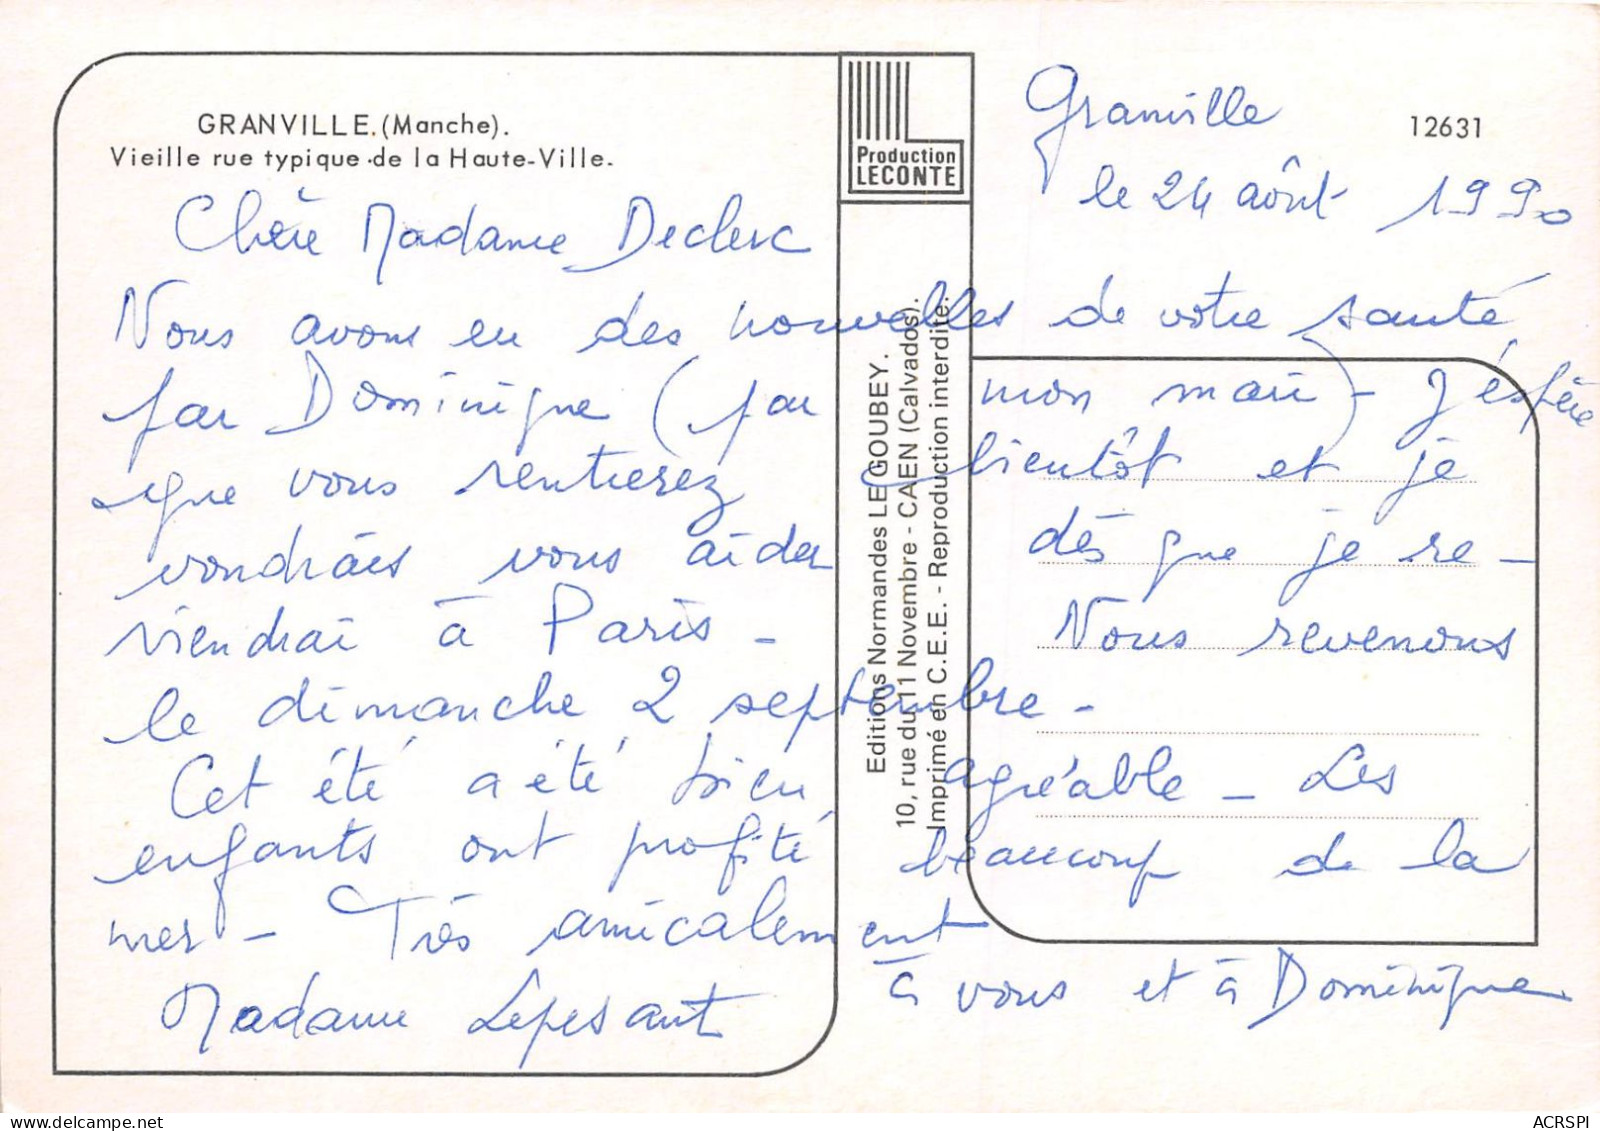 GRANVILLE. (Manche).
Vieille rue typique de la Haute-Ville.
Production
LECONTE
12631
Editions Normandes LE GOUBEY.
10, rue du 11 Novembre - CAEN (Calvados).
Imprimé en C.E.E. - Reproduction interdite.
Granville
le 24 aôut 1990
Chère Madame Declerc
Nous avons eu des nouvelles de votre santé
par Dominique (par mon mari) - J'éspère
que vous rentrerez bientôt et je
voudrais vous aider dès que je re-
viendrai à Paris - Nous revenons
le dimanche 2 septembre -
Cet été a été bien agréable - Les
enfants ont profité beaucoup de la
mer - Très amicalement
à vous et à Dominique
Madame Lepesant
ACRSPI